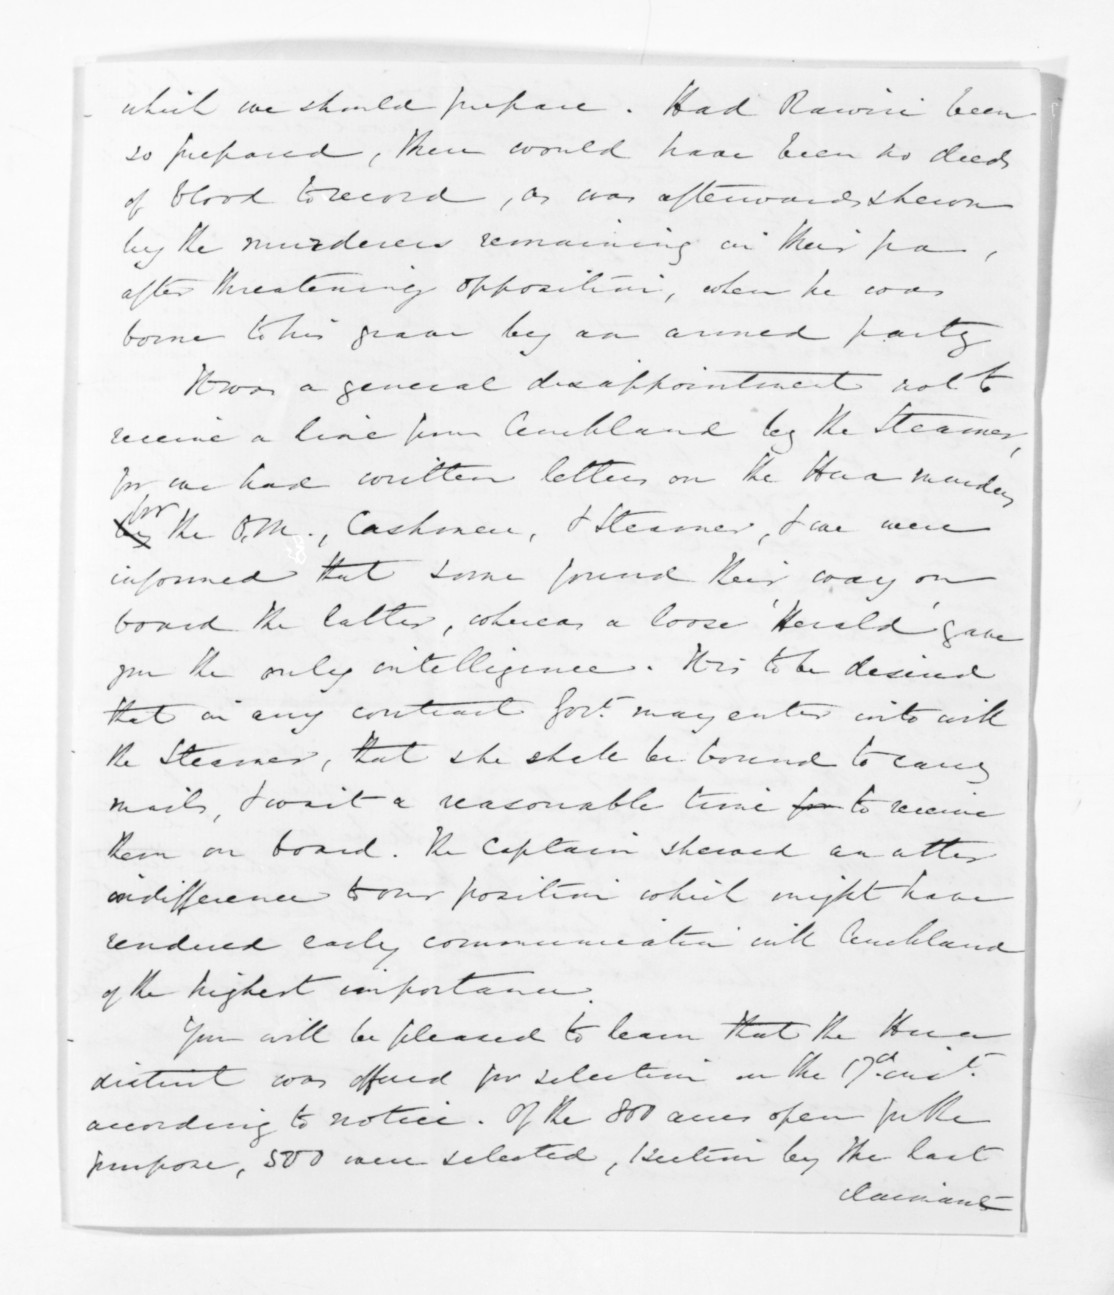 which we should prepare. Had Rawiri been
so prepared, there would have been no deeds
of blood to record, as was afterwards shewn
by the murderers remaining in their pa,
after threatening opposition, when he was
borne to his grave by an armed party
It was a general disappointment not to
receive a line from Auckland by the Steamer,
for we had written letters on the Hua murders
for the O.M., Cashmere, & Steamer, & we were
informed that some found their way on
board the latter, whereas a loose 'Herald' gave
you the only intelligence. It is to be desired
that in any contract Govt. may enter into with
the Steamer, that she shall be bound to carry
mails, & wait a reasonable time for to receive
them on board. The Captain shewed an utter
indifference to our position which might have
rendered early communication with Auckland
of the highest importance.
You will be pleased to learn that the Hua
district was offered for selection on the inst.
according to notice. Of the 800 acres open for the
purpose, 500 were selected, 1 section by the last
claimant